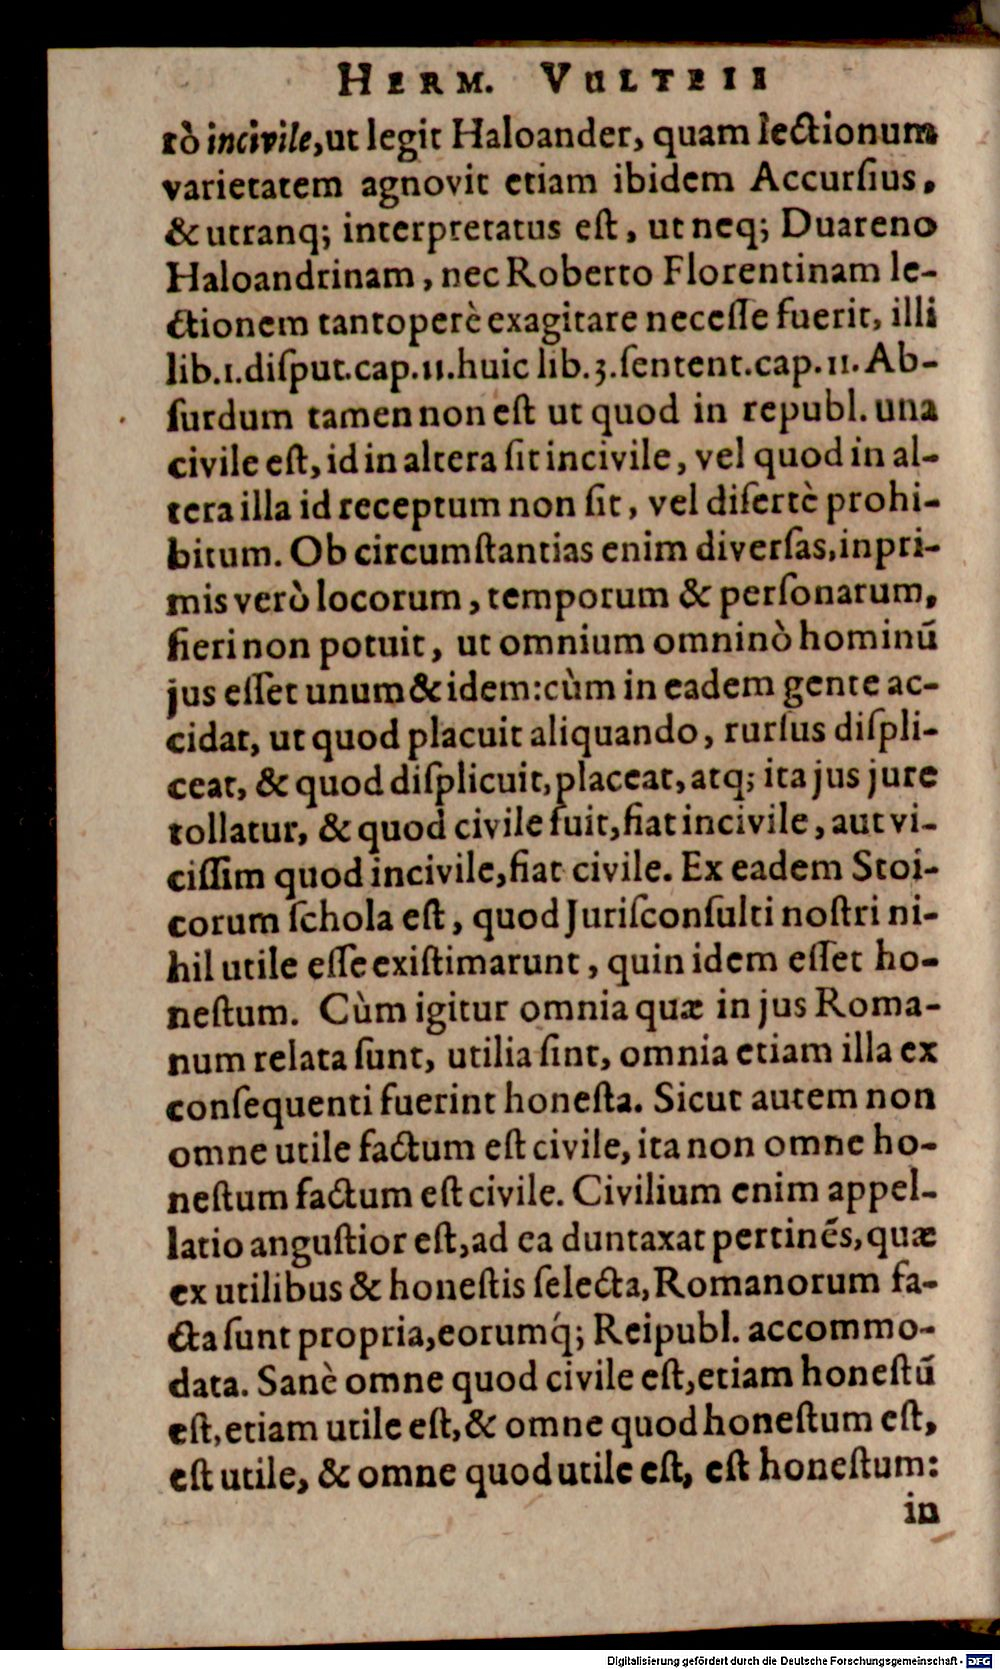 HERM. VULTEII
rò incivile, ut legit Haloander, quam lectionum
varietatem agnovit etiam ibidem Accursius,
& utranq; interpretatus est, ut neq; Duareno
Haloandrinam, nec Roberto Florentinam le-
ctionem tantoperè exagitare necesse fuerit, illi
lib.1.disput.cap.11.huic lib.3.sentent.cap.11. Ab-
surdum tamen non est ut quod in republ. una
civile est, id in altera sit incivile, vel quod in al-
tera illa id receptum non sit, vel disertè prohi-
bitum. Ob circumstantias enim diversas, inpri-
mis verò locorum, temporum & personarum,
fieri non potuit, ut omnium omninò hominū
jus esset unum & idem: cùm in eadem gente ac-
cidat, ut quod placuit aliquando, rursus displi-
ceat, & quod displicuit, placeat, atq; ita jus jure
tollatur, & quod civile fuit, fiat incivile, aut vi-
cissim quod incivile, fiat civile. Ex eadem Stoi-
corum schola est, quod Jurisconsulti nostri ni-
hil utile esse existimarunt, quin idem esset ho-
nestum. Cùm igitur omnia quæ in jus Roma-
num relata sunt, utilia sint, omnia etiam illa ex
consequenti fuerint honesta. Sicut autem non
omne utile factum est civile, ita non omne ho-
nestum factum est civile. Civilium enim appel-
latio angustior est, ad ea duntaxat pertinēs, quæ
ex utilibus & honestis selecta, Romanorum fa-
cta sunt propria, eorumq́; Reipubl. accommo-
data. Sanè omne quod civile est, etiam honestū
est, etiam utile est, & omne quod honestum est,
est utile, & omne quod utile est, est honestum:
in
Digitalisierung gefördert durch die Deutsche Forschungsgemeinschaft - DFG